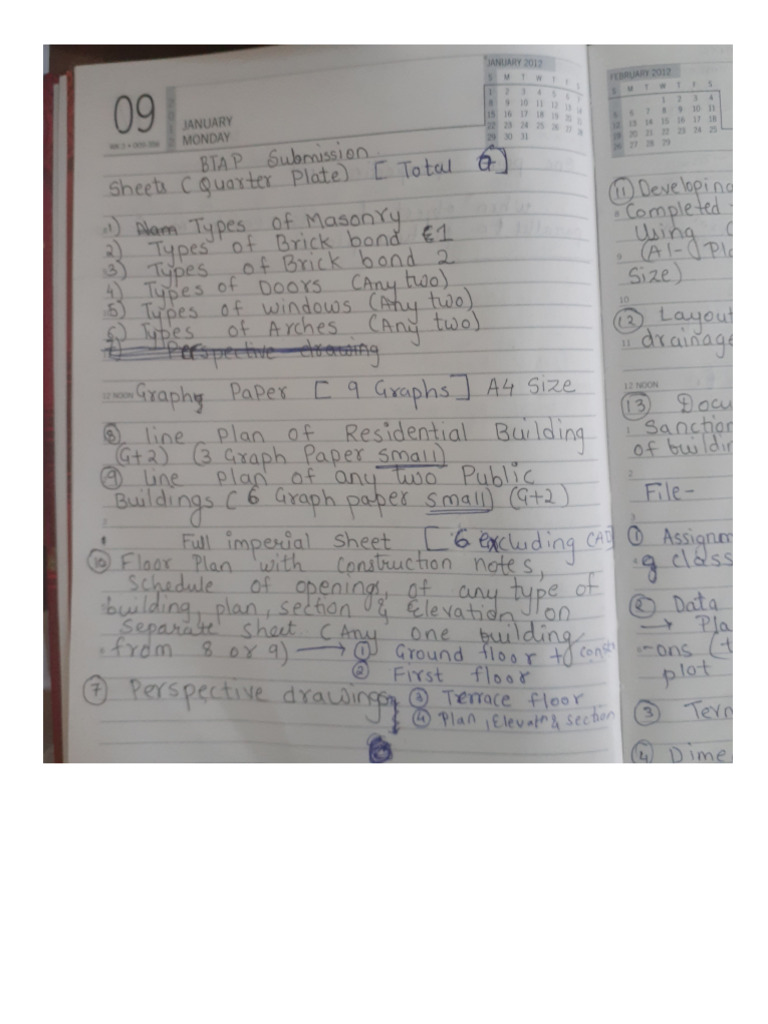 09
2012
JANUARY
MONDAY
JANUARY 2012
S M T W T F S
1 2 3 4 5 6 7
8 9 10 11 12 13 14
15 16 17 18 19 20 21
22 23 24 25 26 27 28
29 30 31
BTAP Submission
Sheets (Quarter Plate) [Total 6]
1) Types of Masonry
2) Types of Brick bond 1
3) Types of Brick bond 2
4) Types of Doors (Any two)
5) Types of windows (Any two)
6) Types of Arches (Any two)
7) Perspective drawing
12 NOON
Graph Paper [9 Graphs] A4 Size
8 line Plan of Residential Building
(G+2) (3 Graph Paper small)
9 Line Plan of any two Public
Buildings (6 Graph paper small) (G+2)
Full imperial Sheet [6 excluding CAD]
10 Floor Plan with construction notes,
Schedule of openings, of any type of
building, plan, section & Elevation on
Separate sheet (Any one building
from 8 or 9) → 1 Ground floor + const
2 First floor
7 Perspective drawing 3 Terrace floor
4 Plan, Elevatn & section
FEBRUARY 2012
S M T W T F S
1 2 3 4
5 6 7 8 9 10 11
12 13 14 15 16 17 18
19 20 21 22 23 24 25
26 27 28 29
11 Developing
Completed
Using
9
(A1-
Size)
10
12 Layout
11
drainage
12 NOON
13 Docu
1
Sanction
of buildin
2
File-
3
1 Assignm
g class
2 Data
→ Pla
-ons
plot
3 Term
4 Dime